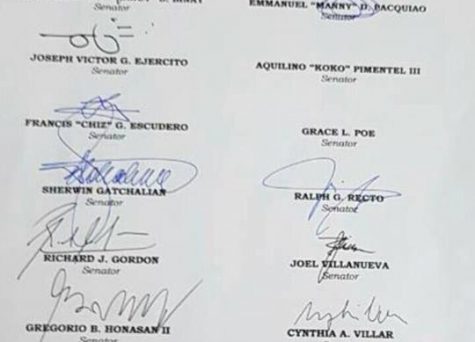 Senator
JOSEPH VICTOR G. EJERCITO
Senator
FRANCIS "CHIZ" G. ESCUDERO
Senator
SHERWIN GATCHALIAN
Senator
RICHARD J. GORDON
Senator
GREGORIO B. HONASAN II
Senator
EMMANUEL "MANNY" D. PACQUIAO
Senator
AQUILINO "KOKO" PIMENTEL III
Senator
GRACE L. POE
Senator
RALPH G. RECTO
Senator
JOEL VILLANUEVA
Senator
CYNTHIA A. VILLAR